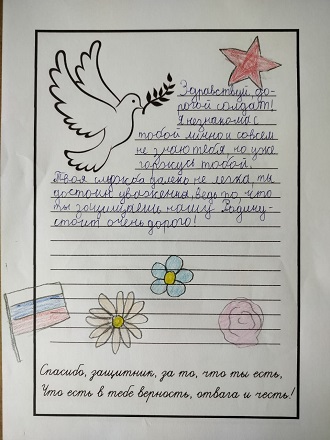 Здравствуй, до-
рогой солдат!
Я незнакома с
тобой лично и совсем
не знаю тебя, но уже
горжусь тобой.
Твоя служба далеко не легка, ты
достоин уважения, ведь то, что
ты защищаешь нашу Родину-
стоит очень дорого!
Спасибо, защитник, за то, что ты есть,
Что есть в тебе верность, отвага и честь!